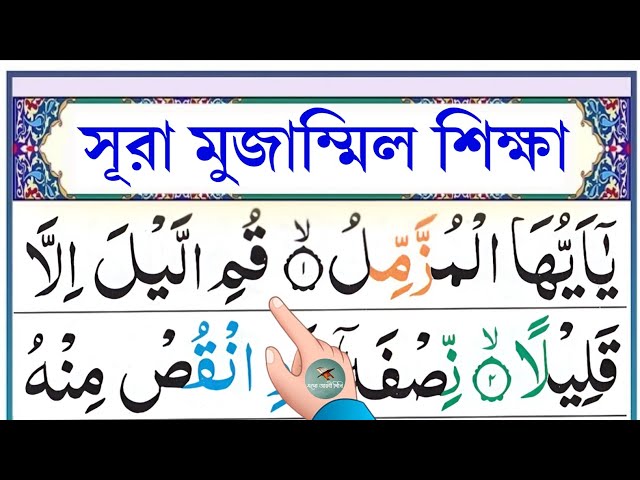 সূরা মুজাম্মিল শিক্ষা
يٰٓاَيُّهَا الْمُزَّمِّلُ ۙ‏ ١ قُمِ الَّيْلَ اِلَّا
قَلِيْلًا ۙ‏ ٢ نِّصْفَهٗۤ انْقُصْ مِنْهُ